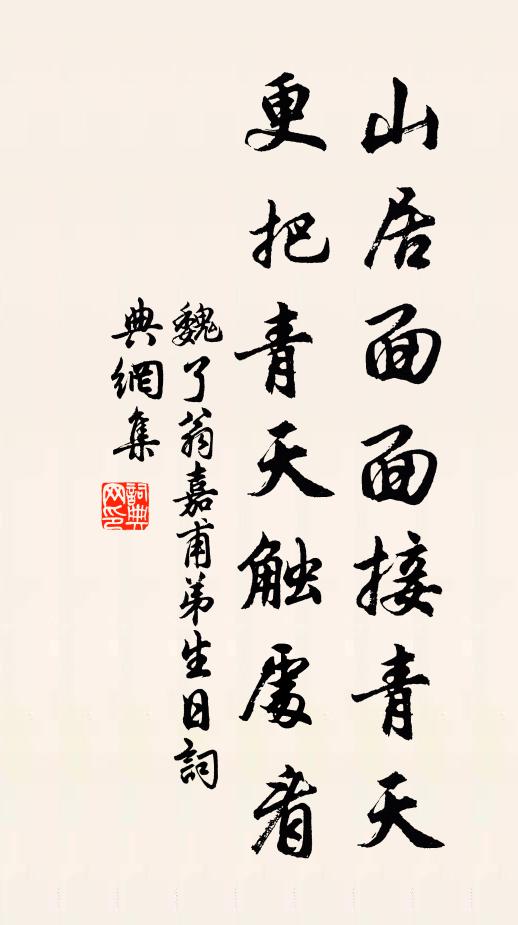 山居面面接青天
更把青天触處看
魏了翁嘉甫弟生日詞
典網集
詞典网印